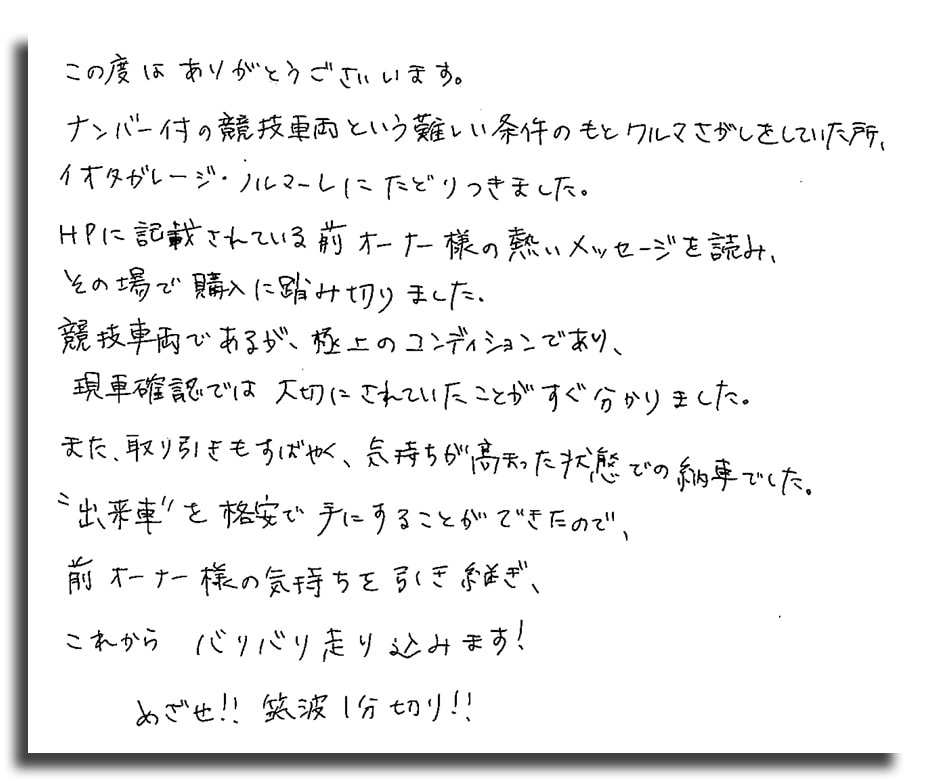 この度は ありがとうございいます。
ナンバー付の競技車両という難しい条件のもとクルマさがしをしていた所、
イオタガレージ・ノルマーレにたどりつきました。
HPに記載されている前オーナー様の熱いメッセージを読み、
その場で購入に踏み切りました。
競技車両であるが、極上のコンディションであり、
現車確認では 大切にされていたことがすぐ分かりました。
また、取り引きもすばやく、気持ちが高まった状態での納車でした。
"出来車"を格安で手にすることができたので、
前オーナー様の気持ちを引き継ぎ、
これから バリバリ走り込みます!
めざせ!! 筑波1分切り!!